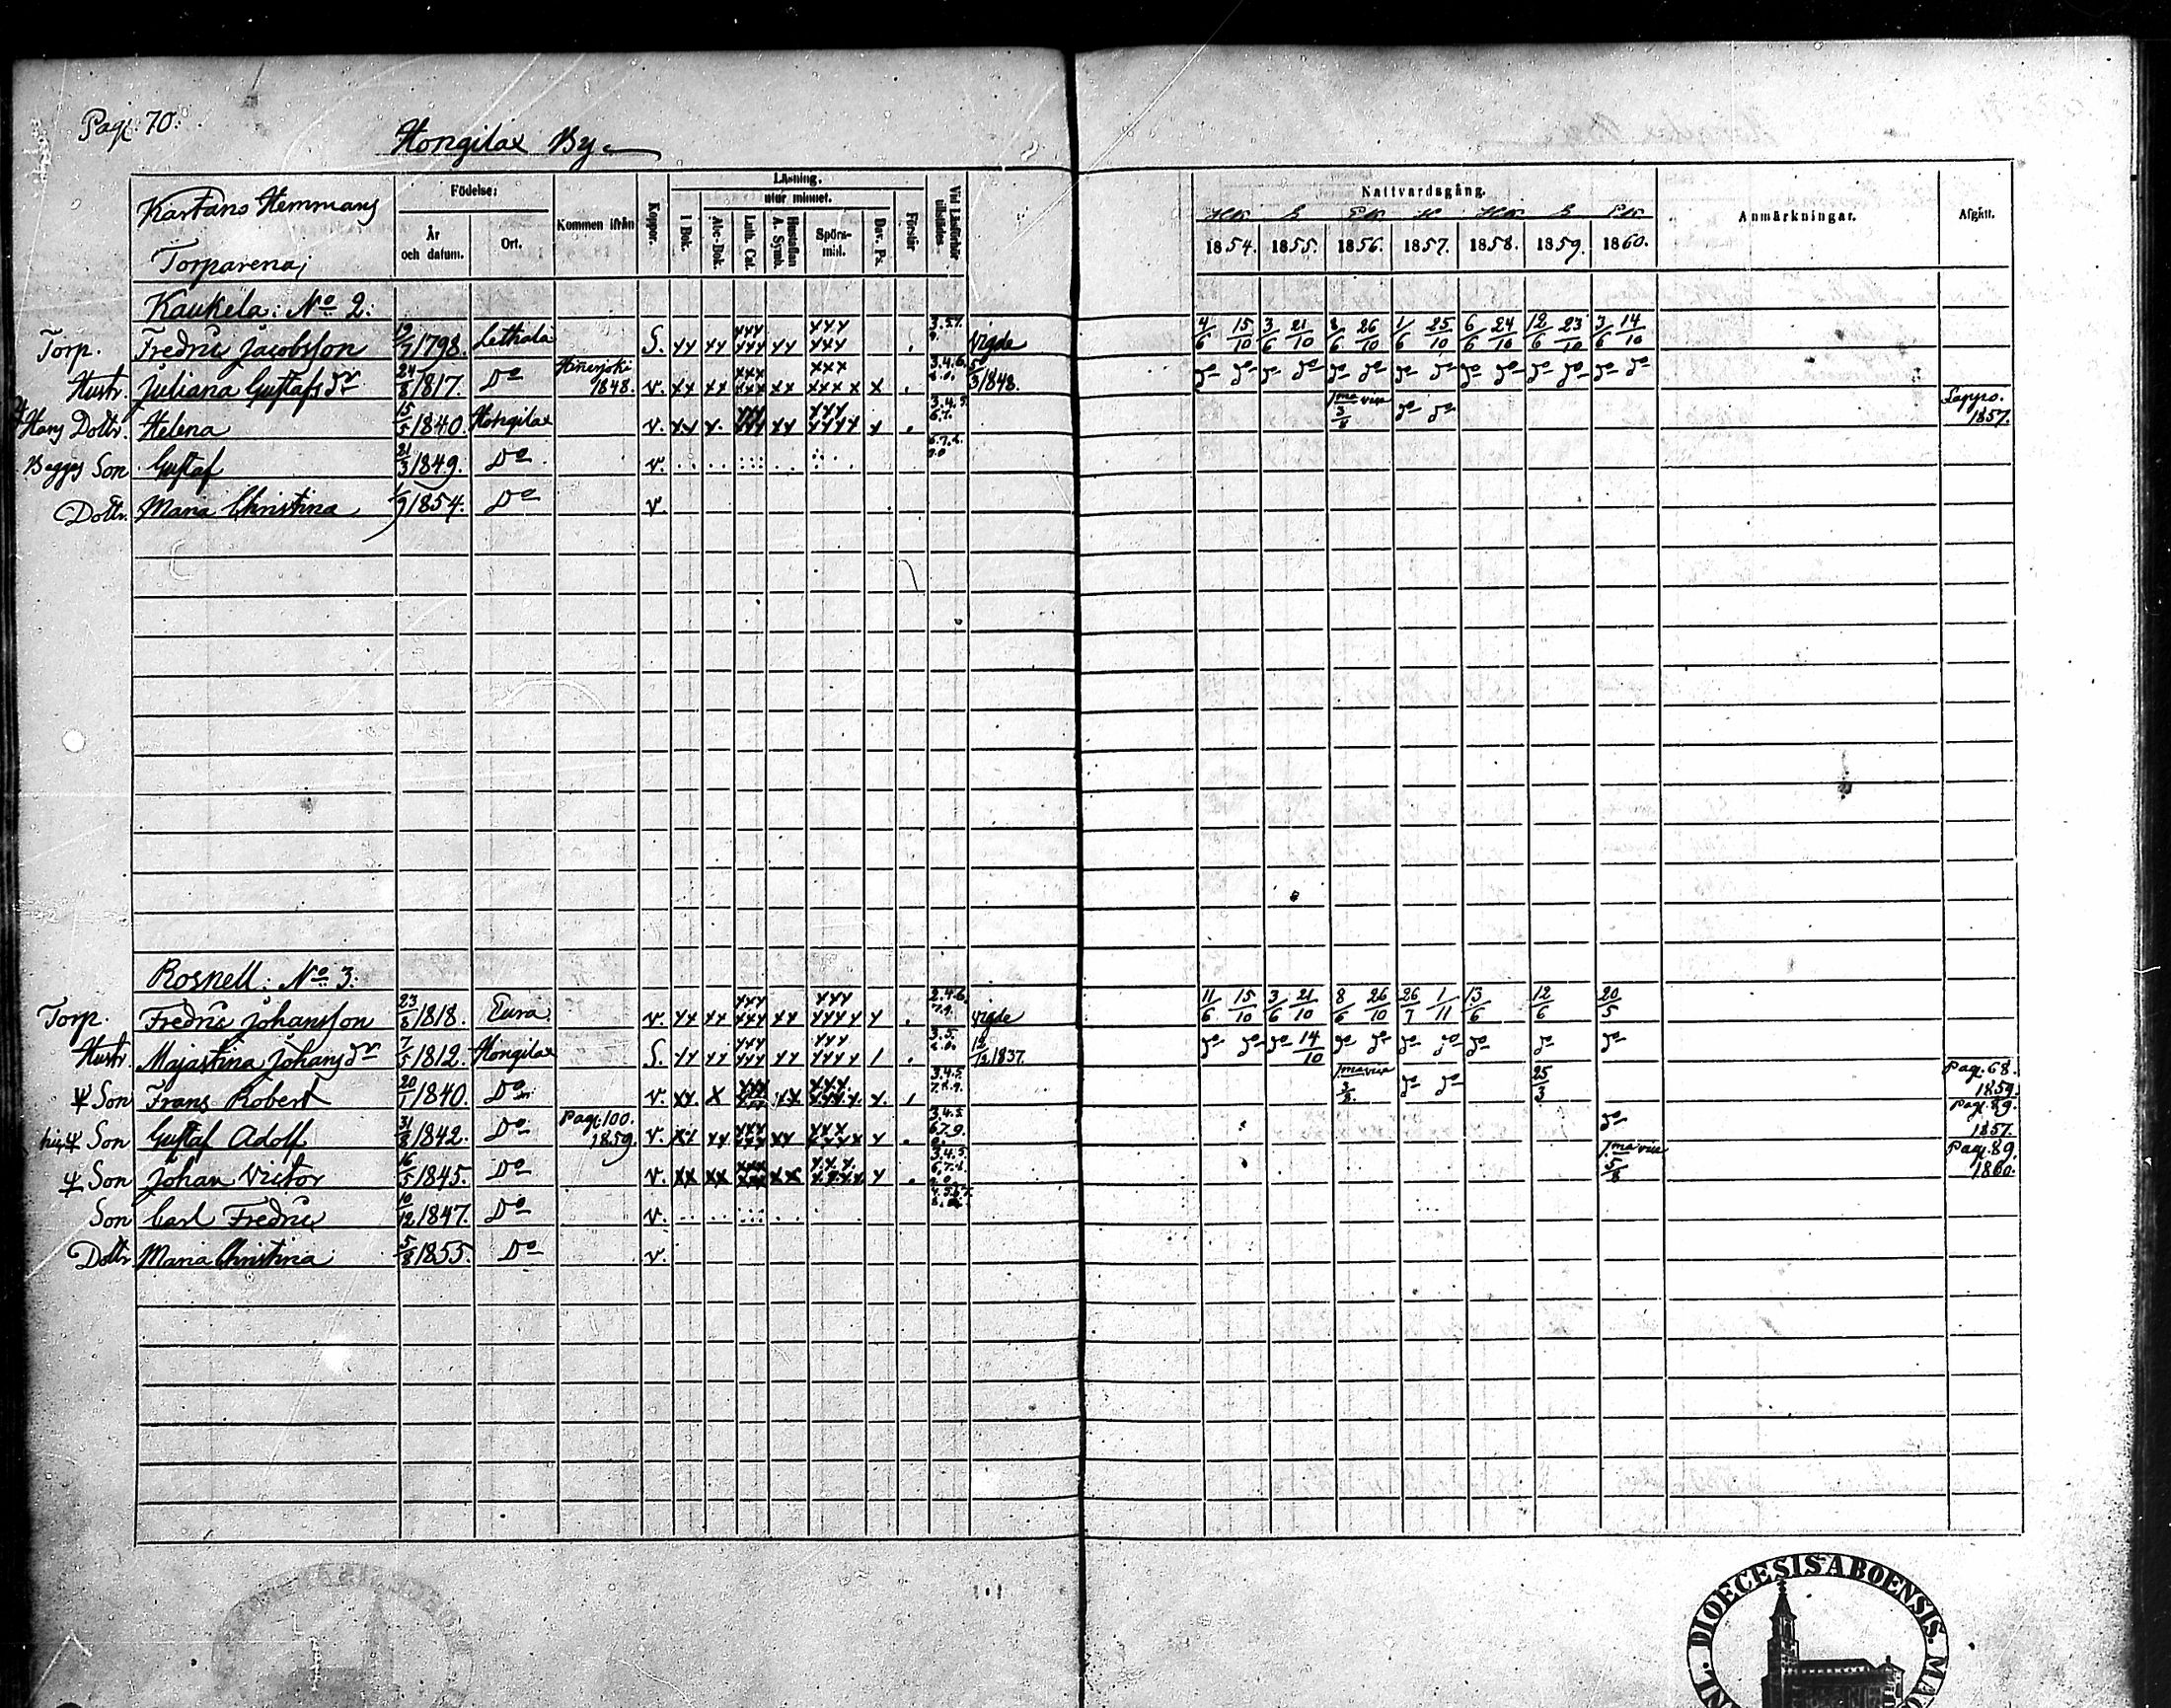 Pag. 70.
Hongilax By.
Kartano Hemmans
Torparena;
Födelse:
År och datum.
Ort.
Kommen ifrån
Koppor.
Läsning.
utur minnet.
I Bok.
Abc-Bok.
Luth. Cat.
Hustaflan A. Symb.
Spörsmål.
Dav. Ps.
Förstår
Vid Läsförhör tillstädes.
Nattvardsgång.
1854. 1855. 1856. 1857. 1858. 1859. 1860.
Anmärkningar.
Afgått.
Kaukela: No 2:
Torp. Fredric Jacobsson 19/7 1798. Lethala S. xx xx xxx xxx xx xxx xxx vigde 4/6 15/10 3/6 21/10 8/6 26/10 1/6 25/10 6/6 24/10 12/6 23/10 3/6 14/10
Hustr. Juliana Gustafsdr 24/8 1817. Do Hinerjoki 1848. v. xx xx xxx xxx xx xxx xxxx x 5/3 1848. do do do do do do do do do do do do do do
Hans Dottr. Helena 15/5 1840. Hongilax v. xx x. xxx xxx xx xxx xxxx x 1ma vice 3/8 do do Lappo. 1857.
Begges Son Gustaf 21/3 1849. Do v.
Dottr. Maria Christina 1/9 1854. Do v.
Rosnell: No 3:
Torp. Fredric Johansson 23/8 1818. Eura v. xx xx xxx xxx xx xxx xxxx x vigde 11/6 15/10 3/6 21/10 8/6 26/10 26/7 1/11 13/6 12/6 20/5
Hustr. Majastina Johansdr 7/5 1812. Hongilax S. xx xx xxx xxx xx xxx xxxx 12/12 1837. do do do 14/10 do do do do do do do
Son Frans Robert 20/1 1840. Do v. xx. x xxx xxx xx xxx xxxx x. 1ma vice 3/8 do do 25/3 Pag. 68. 1859.
Son Gustaf Adolf 31/8 1842. Do Pag. 100. 1859. v. xx xx xxx xxx xx xxx xxxx x do Pag. 89. 1857.
Son Johan Victor 16/5 1845. Do v. xx xx xxx xxx xx xxx xxxx x 1ma vice 5/8 Pag. 89. 1860.
Son Carl Fredric 10/12 1847. Do v.
Dottr Maria Christina 5/8 1855. Do v.
DIOECESIS ABOENSIS.